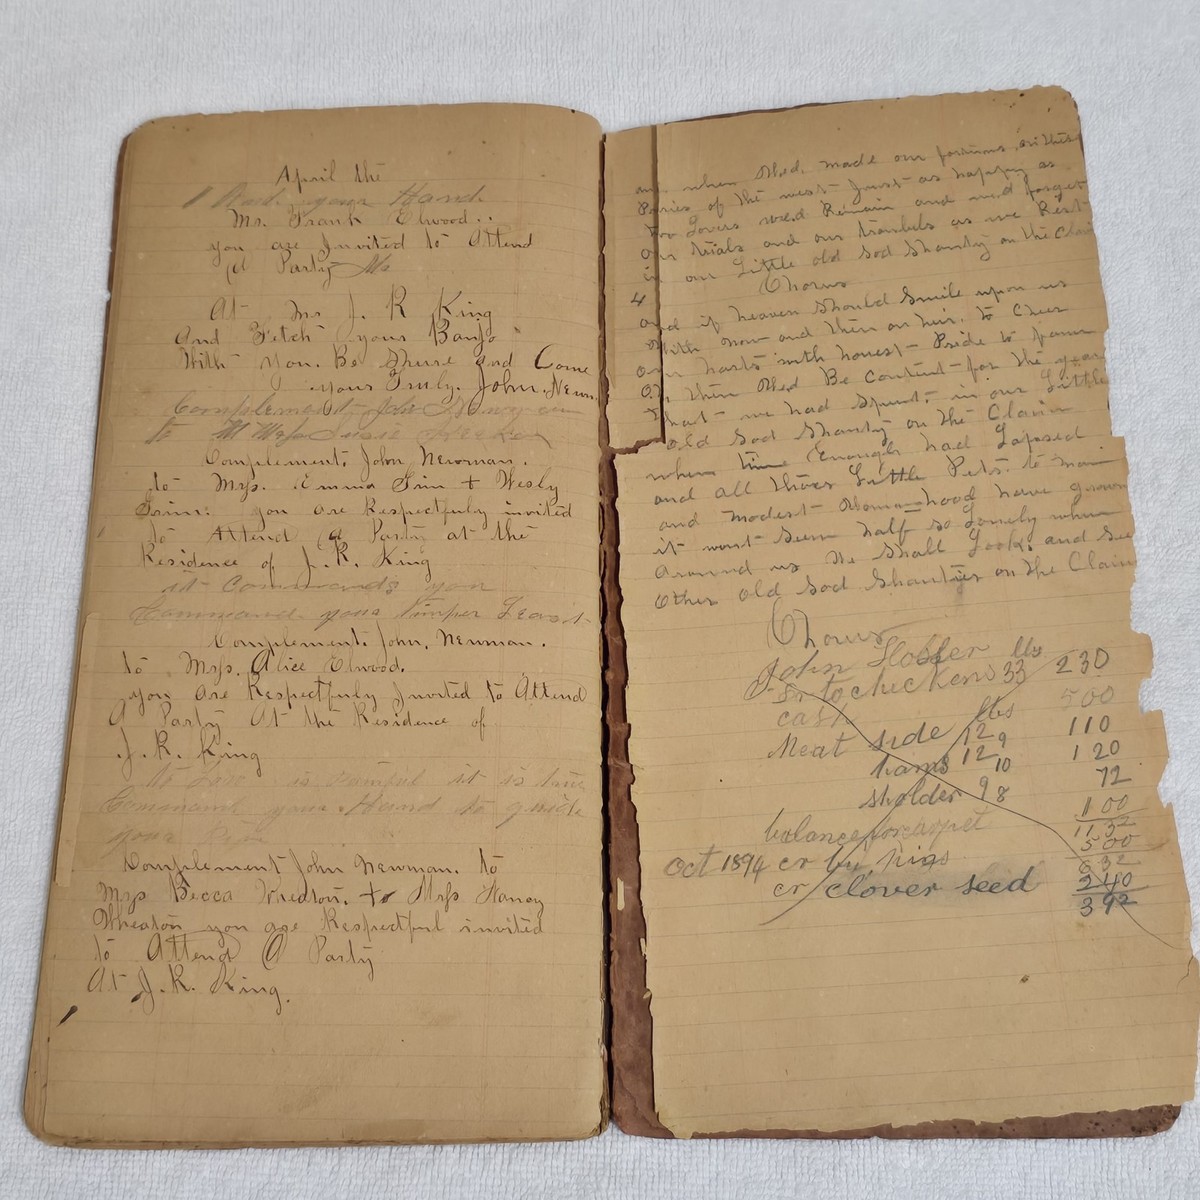 April the
your Hand
Mr. Frank Elwood..
you are Invited to Attend
A Party
At Mr J. R King
And Fetch your Banjo
With you. Be Shure and Come
yours Truly. John. Newm
Complement John
to
Complement. John, Newman.
to Mrss. Emma Irin + Wesly
Irvin: you are Respectfuly invited
to Attend a Party at the
Residence of J. R. King
it Commands you
Command your
Complement. John, Newman.
to Mrss. Alice Elwood.
you are Respectfuly Invited to Attend
A Party At the Residence of
J. R. King
To Love is it is
Command your Hand to
your
Complement John Newman. to
Mrss Becca to Mrss Nancy
Wheaton you are Respectful invited
to Attend A Party
At J. R. King.
when Wed. made our fortuns on these
Paries of the west Just as happy as
two Lovers wed Remain and wed forget
our trials and our troubuls as we Rest
in our Little old Sod Shanty on the Claim
Chorus
4
and if heaven Should Smile upon us
With now and then an hir. to Cheer
our harts with honest Pride to
O, then Wed Be Content for the year
that we had Spent in our Little
old Sod Shanty on the Claim
when time Enough had Lapsed
and all those Little Pets. to
and modest Woman=hood have grown
it wont Seem half so Lonely when
around us We Shall Look. and See
other old Sod Shantys on the Claim
Chorus
John lbs
to chickens 33 230
cash 500
lbs
Meat side 12 9 110
hams 12 10 120
sholder 9 8 72
balance for 100
1132
500
Oct 1894 cr by pigs 632
cr clover seed 240
392